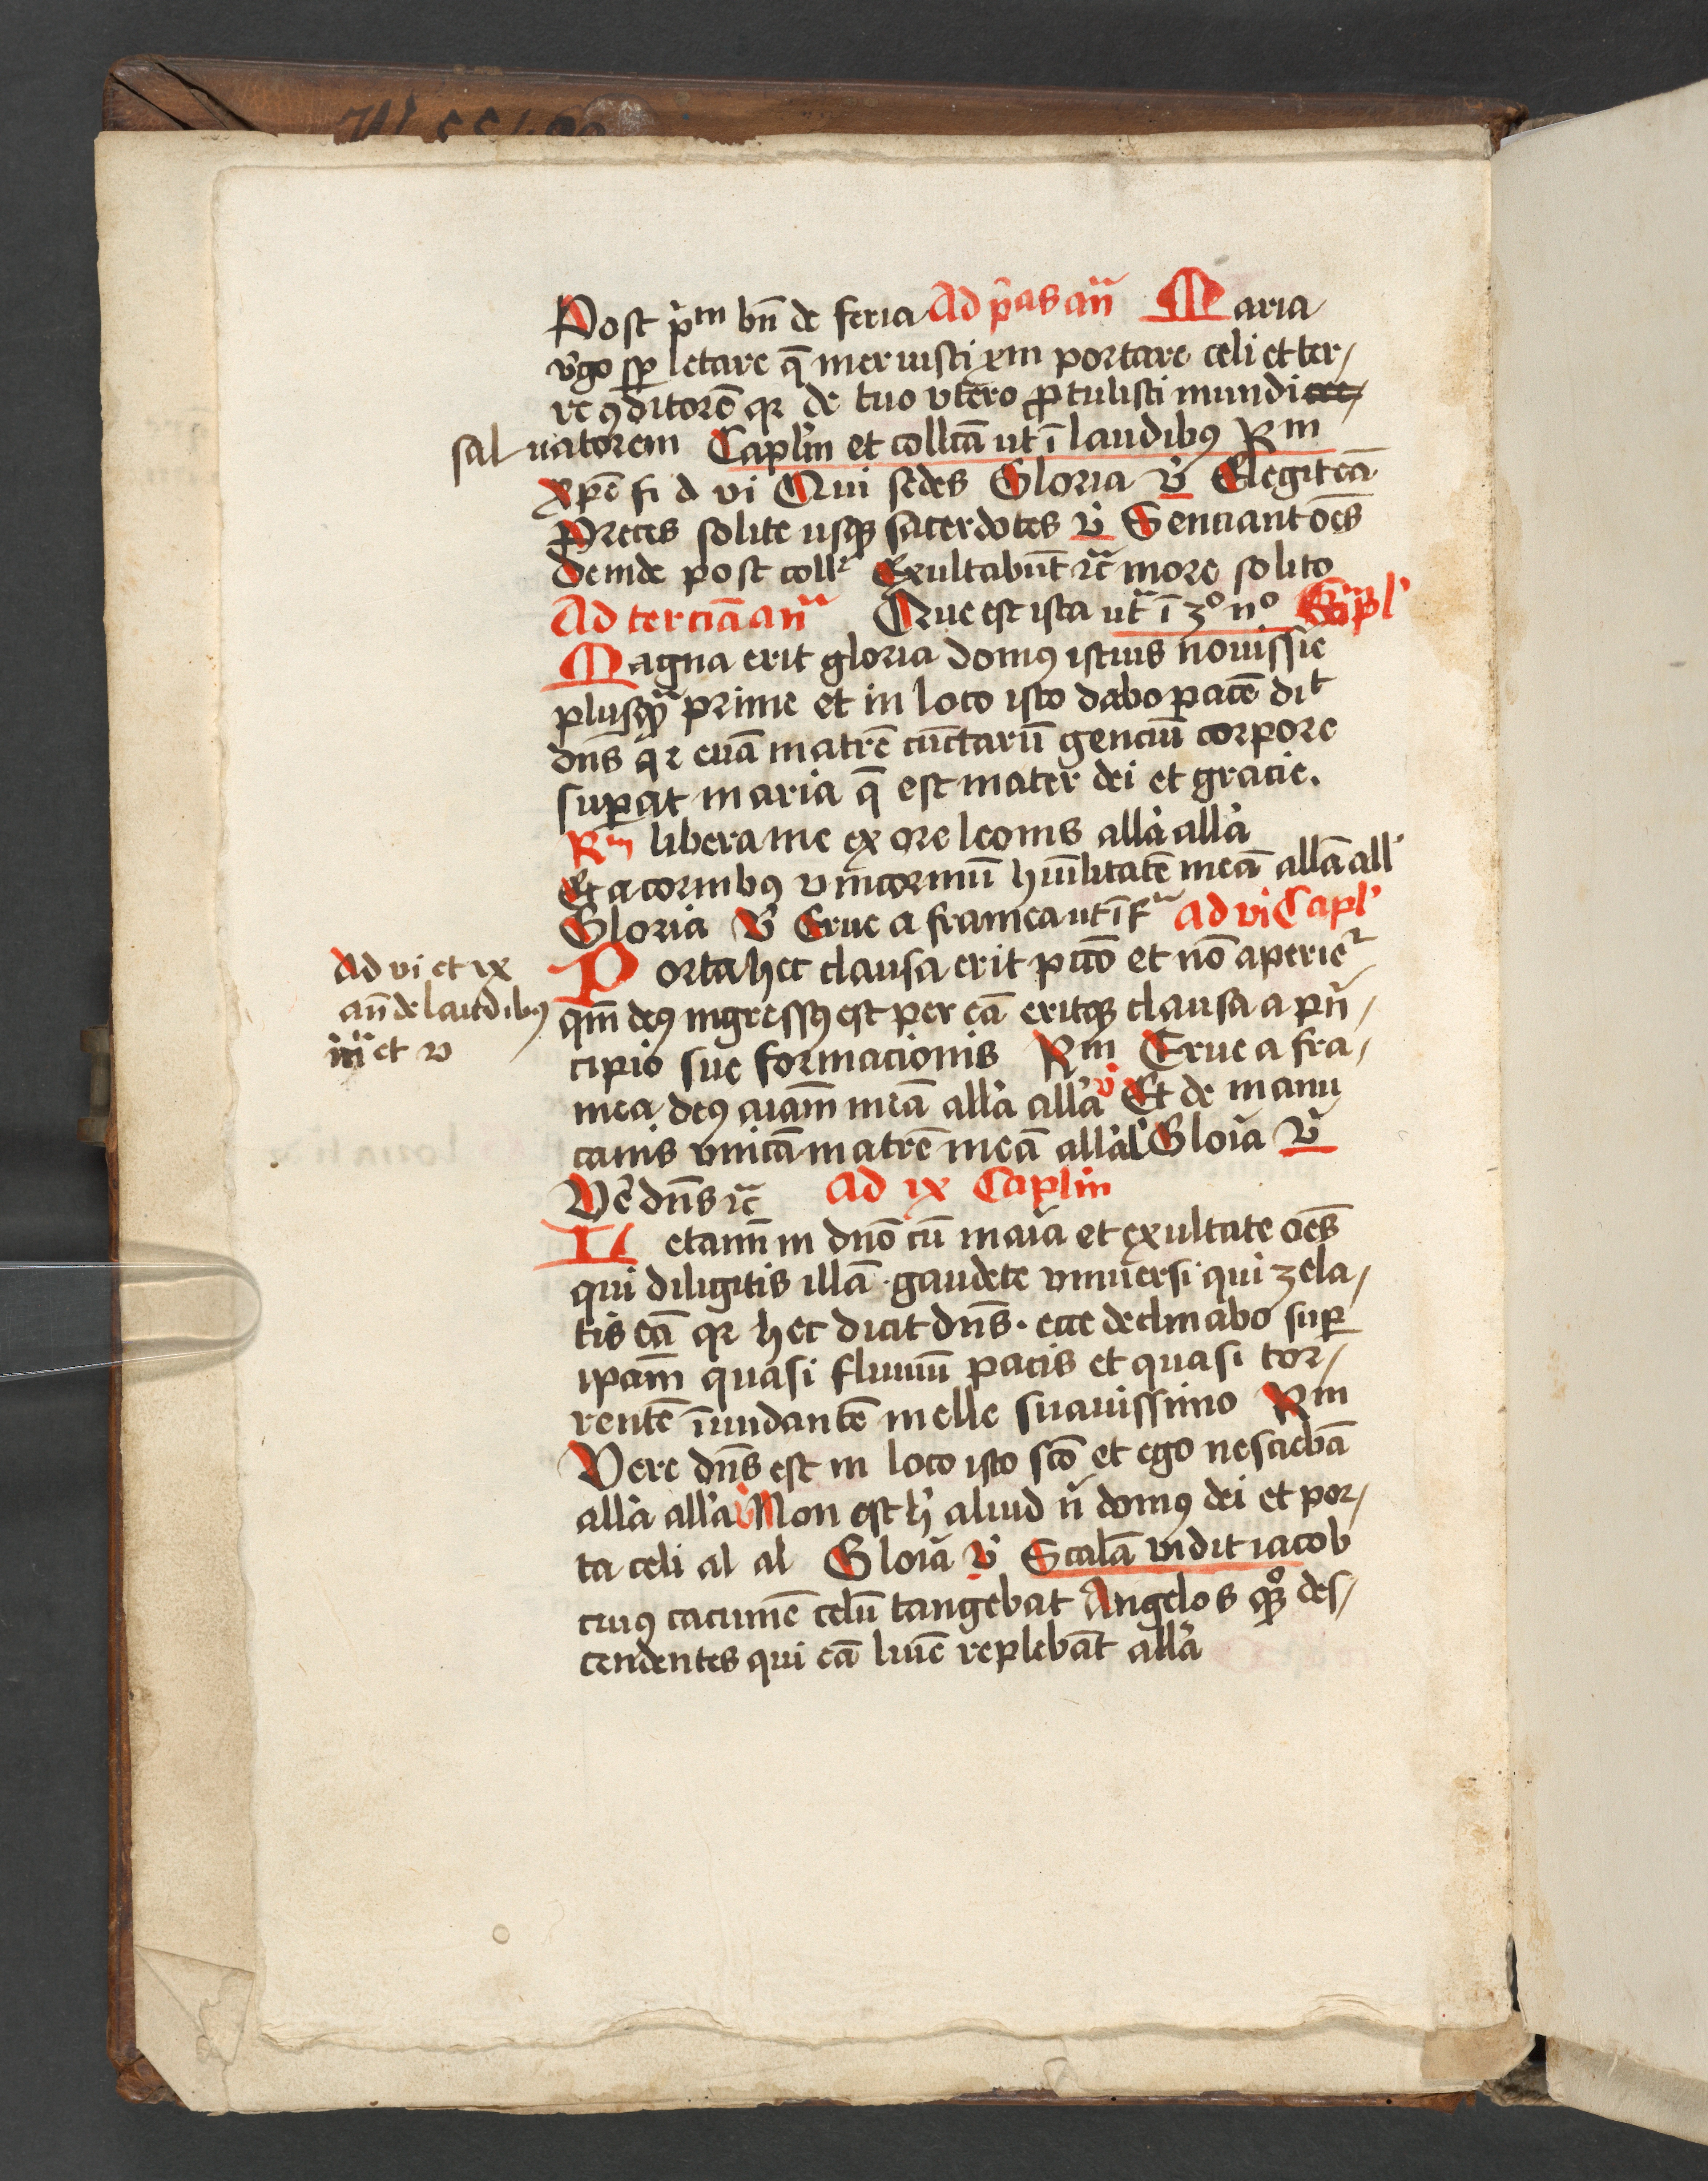 Post pͥm bn̄ de feria Ad pͥas an̄ Maria
v̓go sp̲ letare q̄ meruisti xm̄ portare celi et ter/
re ꝯditorē qꝛ de tuo vtero ꝓtulisti mundi
saluatorem Caplm̄ et collcā ut ī laudibꝰ Rm
xp̄e fi d vi Qui sedes Gloria v̓ Elegit eā
Preces solite usqꝫ sacerdotes v̓ Senciant oēs
deinde post collᷓ Exultabūt ⁊c̄ more solito
Ad terciā an̄ Que est ista ut ī 3º nº Capl̓
Magna erit gloria domꝰ istius nouissīe
plusqᷓ prime et in loco isto dabo pacē dit
dn̄s qꝛ euā matrē cūctarū genciū corpore
suꝑat maria q̄ est mater dei et gracie.
Rm libera me ex ore leonis all̓a all̓a
Et a cornibꝰ vnicorniū hūilitatē meā all̄a all̓
Gloria v̓ Erue a framea ut ī fᷓ Ad vi Capl̓
Ad vi et ix
an̄ de laudibꝰ
iiiᷓ et v
Porta hec clausa erit ꝑ uō et nō aperieᷣ
qm̄ deꝰ ingressꝰ est per eā eritqꝫ clausa a pn̓/
cipio sue formacionis Rm Erue a fra/
mea deꝰ aīam meā all̓a all̓a v̓ Et de manu
canis vnicā matrē meā all̓a l̓ Gloīa v̓
Ve̓ dn̄s ⁊c̄ Ad ix Caplm̄
Letamī in dn̄o cū maīa et exultate oēs
qui diligitis illā · gaudete vniuersi qui zela/
tis eā qꝛ hec dicit dn̄s · ecce declinabo suꝑ
ipam̄ quasi fluuiū pacis et quasi tor/
rentē īundantē melle suauissimo Rm
Vere dn̄s est in loco isto scō et ego nesciebā
all̓a all̓a v̓ Non est h̓ aliud n̓ domꝰ dei et por/
ta celi al al Gloīa v̓ Scalā vidit iacob
cuiꝰ cacumē celū tangebat Angelos qꝫ° des/
cendentes qui eā luīe replebāt all̓a